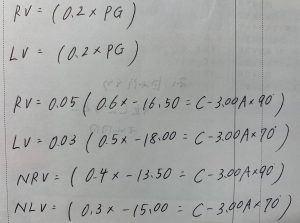 RV = (0.2 x PG)
LV = (0.2 x PG)
RV = 0.05 (0.6 x -16.50 = C-3.00A x 90°
LV = 0.03 (0.5 x -18.00 = C-3.00A x 70°
NRV = (0.4 x -13.50 = C-3.00A x 90)
NLV = (0.3 x -15.00 = C-3.00A x 70°